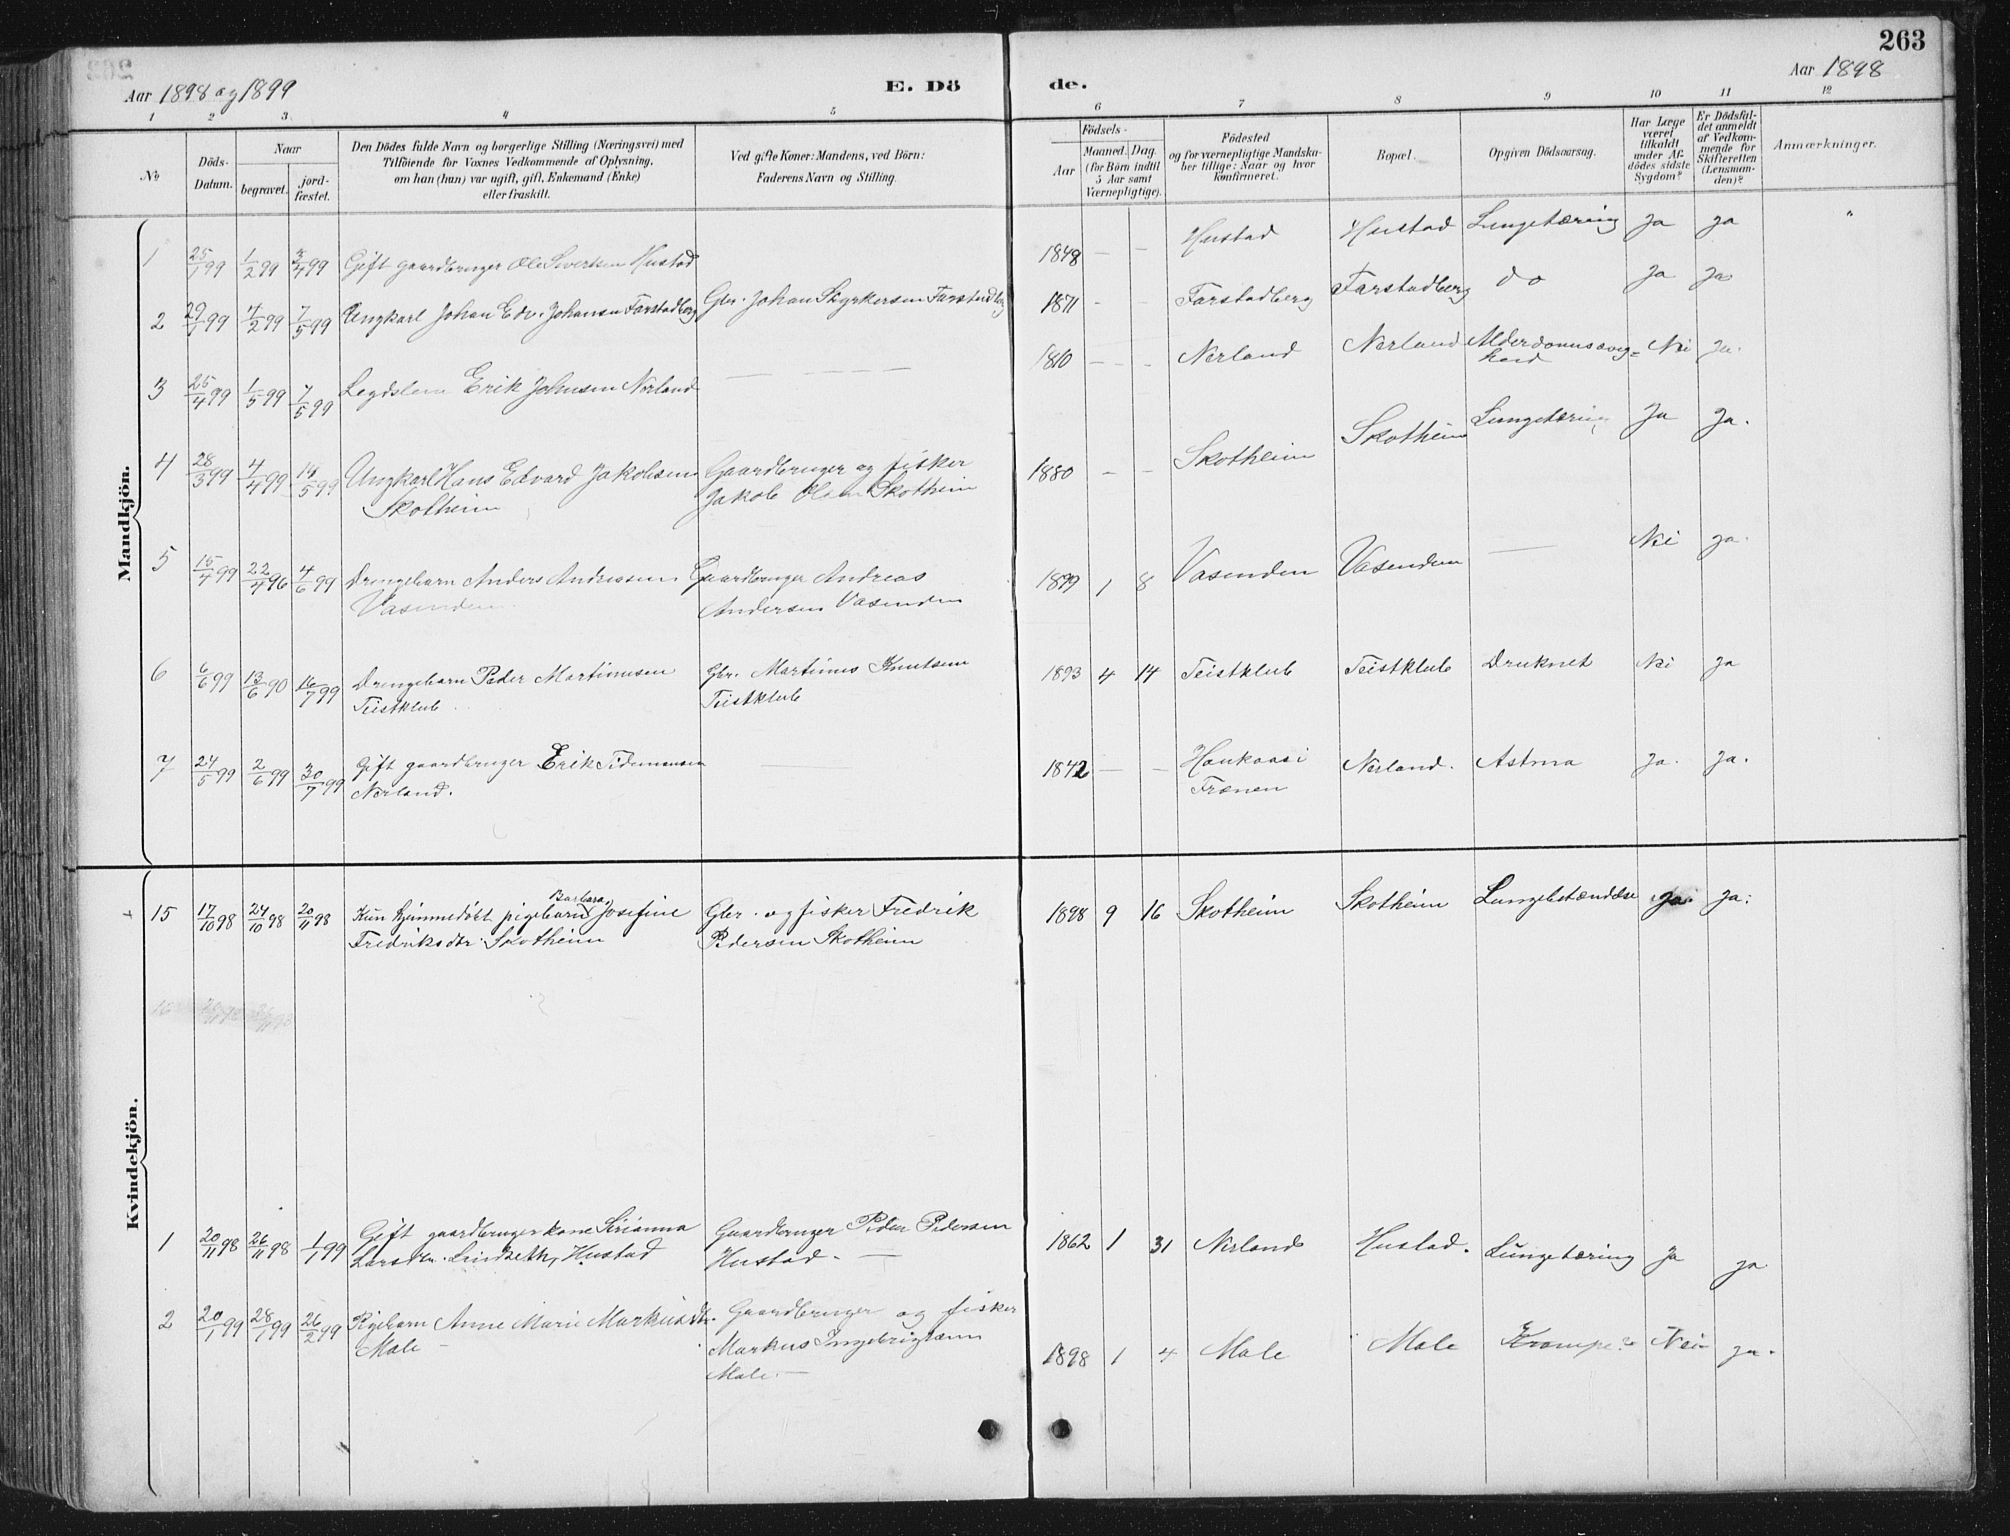 263
Aar 1898 og 1899
E. Dö
de.
Aar 1898
1 2 3 4 5 6 7 8 9 10 11 12
No
Döds-Datum.
Naar
begravet.
jord-fæstet.
Den Dödes fulde Navn og borgerlige Stilling (Næringsvei) med
Tilföiende for Voxnes Vedkommende af Oplysning,
om han (hun) var ugift, gift, Enkemand (Enke)
eller fraskilt.
Ved gifte Koner: Mandens, ved Börn:
Faderens Navn og Stilling.
Födsels-
Aar
Maaned. Dag.
(for Börn indtil
5 Aar samt
Værnepligtige).
Födested
og for værnepligtige Mandska-
ber tillige: Naar og hvor
konfirmeret.
Bopæl.
Opgiven Dödsaarsag.
Har Læge
været
tilkaldt
under Af-
dödes sidste
Sygdom?
Er Dödsfal-
det anmeldt
af Vedkom-
mende for
Skifteretten
(Lensman-
den)?
Anmærkninger.
Mandkjön.
1 25/1 99 1/2 99 3/4 99 Gift gaardbruger Ole Sivertsen Hustad 1848 — — Hustad Hustad Lungetæring Ja Ja "
2 29/1 99 4/2 99 7/5 99 Ungkarl Johan Edv. Johansen Farstadberg Gbr. Johan Styrkersen Farstadberg 1871 - - Farstadberg Farstadberg do Ja Ja
3 25/4 99 1/5 99 7/5 99 Legdslem Erik Johnsen Nerland — — — — — 1810 — - - Nerland Nerland Alderdomssvag=
hed Nei Ja.
4 28/3 99 4/4 99 14/5 99 Ungkarl Hans Edvard Jakobsen
Skotheim Gaardbruger og fisker
Jakob Olsen Skotheim 1880 - - Skotheim Skotheim Lungetæring Ja Ja.
5 15/4 99 22/4 96 4/6 99 Drengebarn Anders Andreassen
Vasenden Gaardbruger Andreas
Andersen Vasenden 1899 1 8 Vasenden Vasenden — Nei ja.
6 6/6 99 13/6 90 16/7 99 Drengebarn Peder Martinusen
Teistklub Gbr. Martinus Knutsen
Teistklub 1893 4 14 Teistklub Teistklub Druknet Nei Ja
7 24/5 99 2/6 99 30/7 99 Gift gaardbruger Erik Tidemansen
Nerland. — 1842 — — Haukaas i
Frænen Nerland. Astma Ja. Ja.
Kvindekjön.
15 17/10 98 24/10 98 20/11 98 Kun hjemmedöbt pigebarn Barbara Josefine
Fredriksdtr. Skotheim Gbr. og fisker Fredrik
Pedersen Skotheim 1898 9 16 Skotheim Skotheim Lungebetændelse Ja. Ja.
1 20/11 98 26/11 98 1/1 99 Gift gaardbrugerkone Sirianna
Larsdtr. Lindseth, Hustad Gaardbruger Peder Pedersen
Hustad. — 1862 1 31 Nerland Hustad. Lungetæring Ja Ja
2 20/1 99 28/1 99 26/2 99 Pigebarn Anne Marie Markusdtr.
Male Gaardbruger og fisker
Markus Ingebrigtsen
Male. — 1898 1 4 Male Male Krampe? Nei Ja.